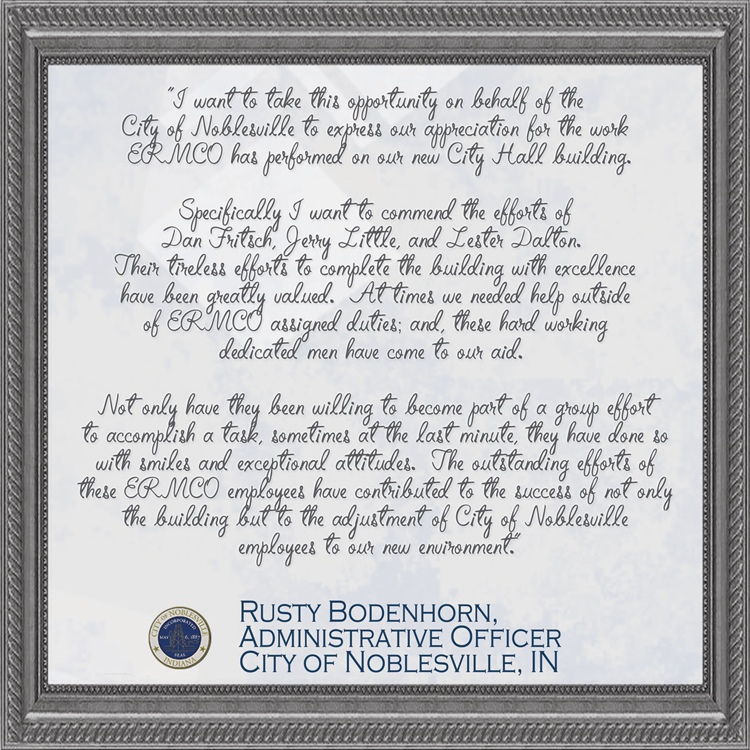 "I want to take this opportunity on behalf of the
City of Noblesville to express our appreciation for the work
ERMCO has performed on our new City Hall building.
Specifically I want to commend the efforts of
Dan Fritsch, Jerry Little, and Lester Dalton.
Their tireless efforts to complete the building with excellence
have been greatly valued. At times we needed help outside
of ERMCO assigned duties; and, these hard working
dedicated men have come to our aid.
Not only have they been willing to become part of a group effort
to accomplish a task, sometimes at the last minute, they have done so
with smiles and exceptional attitudes. The outstanding efforts of
these ERMCO employees have contributed to the success of not only
the building but to the adjustment of City of Noblesville
employees to our new environment."
CITY OF NOBLESVILLE
INCORPORATED
MAY 6, 1887
SEAL
INDIANA
RUSTY BODENHORN,
ADMINISTRATIVE OFFICER
CITY OF NOBLESVILLE, IN